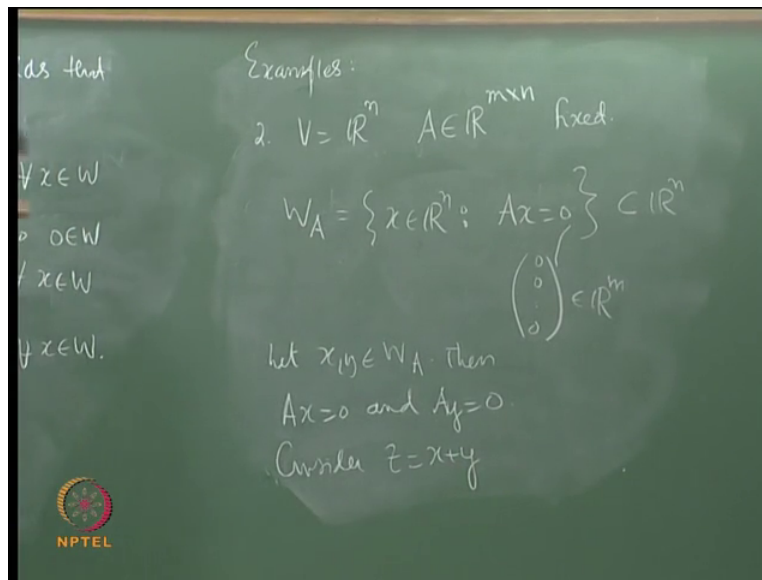 ids that
∀ x ∈ W
0 ∈ W
x ∈ W
∀ x ∈ W.
Examples:
2. V = ℝⁿ A ∈ ℝᵐˣⁿ fixed.
W_A = { x ∈ ℝⁿ : Ax = 0 } ⊂ ℝⁿ
(0 0 . 0) ∈ ℝᵐ
Let x, y ∈ W_A. Then
Ax = 0 and Ay = 0.
Consider z = x + y
NPTEL